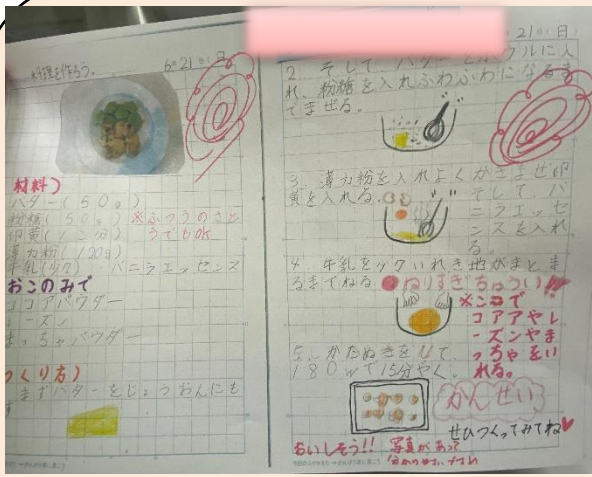 料理を作ろう。
6月21日(日)
材料)
バター(50g)
粉糖(50g) ※ふつうのさと
うでもOK
卵黄(1こ分)
薄力粉(120g)
牛乳(少々) バニラエッセンス
おこのみで
ココアパウダー
レーズン
まっちゃパウダー
つくり方)
まずバターをじょうおんにも
す
21日(日)
2. そして、バターをボウルに入
れ、粉糖を入れふわふわになるま
でまぜる。
3. 薄力粉を入れよくかきまぜ卵
黄を入れる。
そして、バ
ニラエッセ
ンスを入れ
る。
4. 牛乳を少々いれき地がまとま
るまでねる
ねりすぎちゅうい!!
※ここで
コアアやレ
ーズンやま
っちゃをい
れる。
5. かたぬきをして、
180wで15分やく。
かんせい
ぜひつくってみてね
おいしそう!! 写真があって
分かりやすいですね